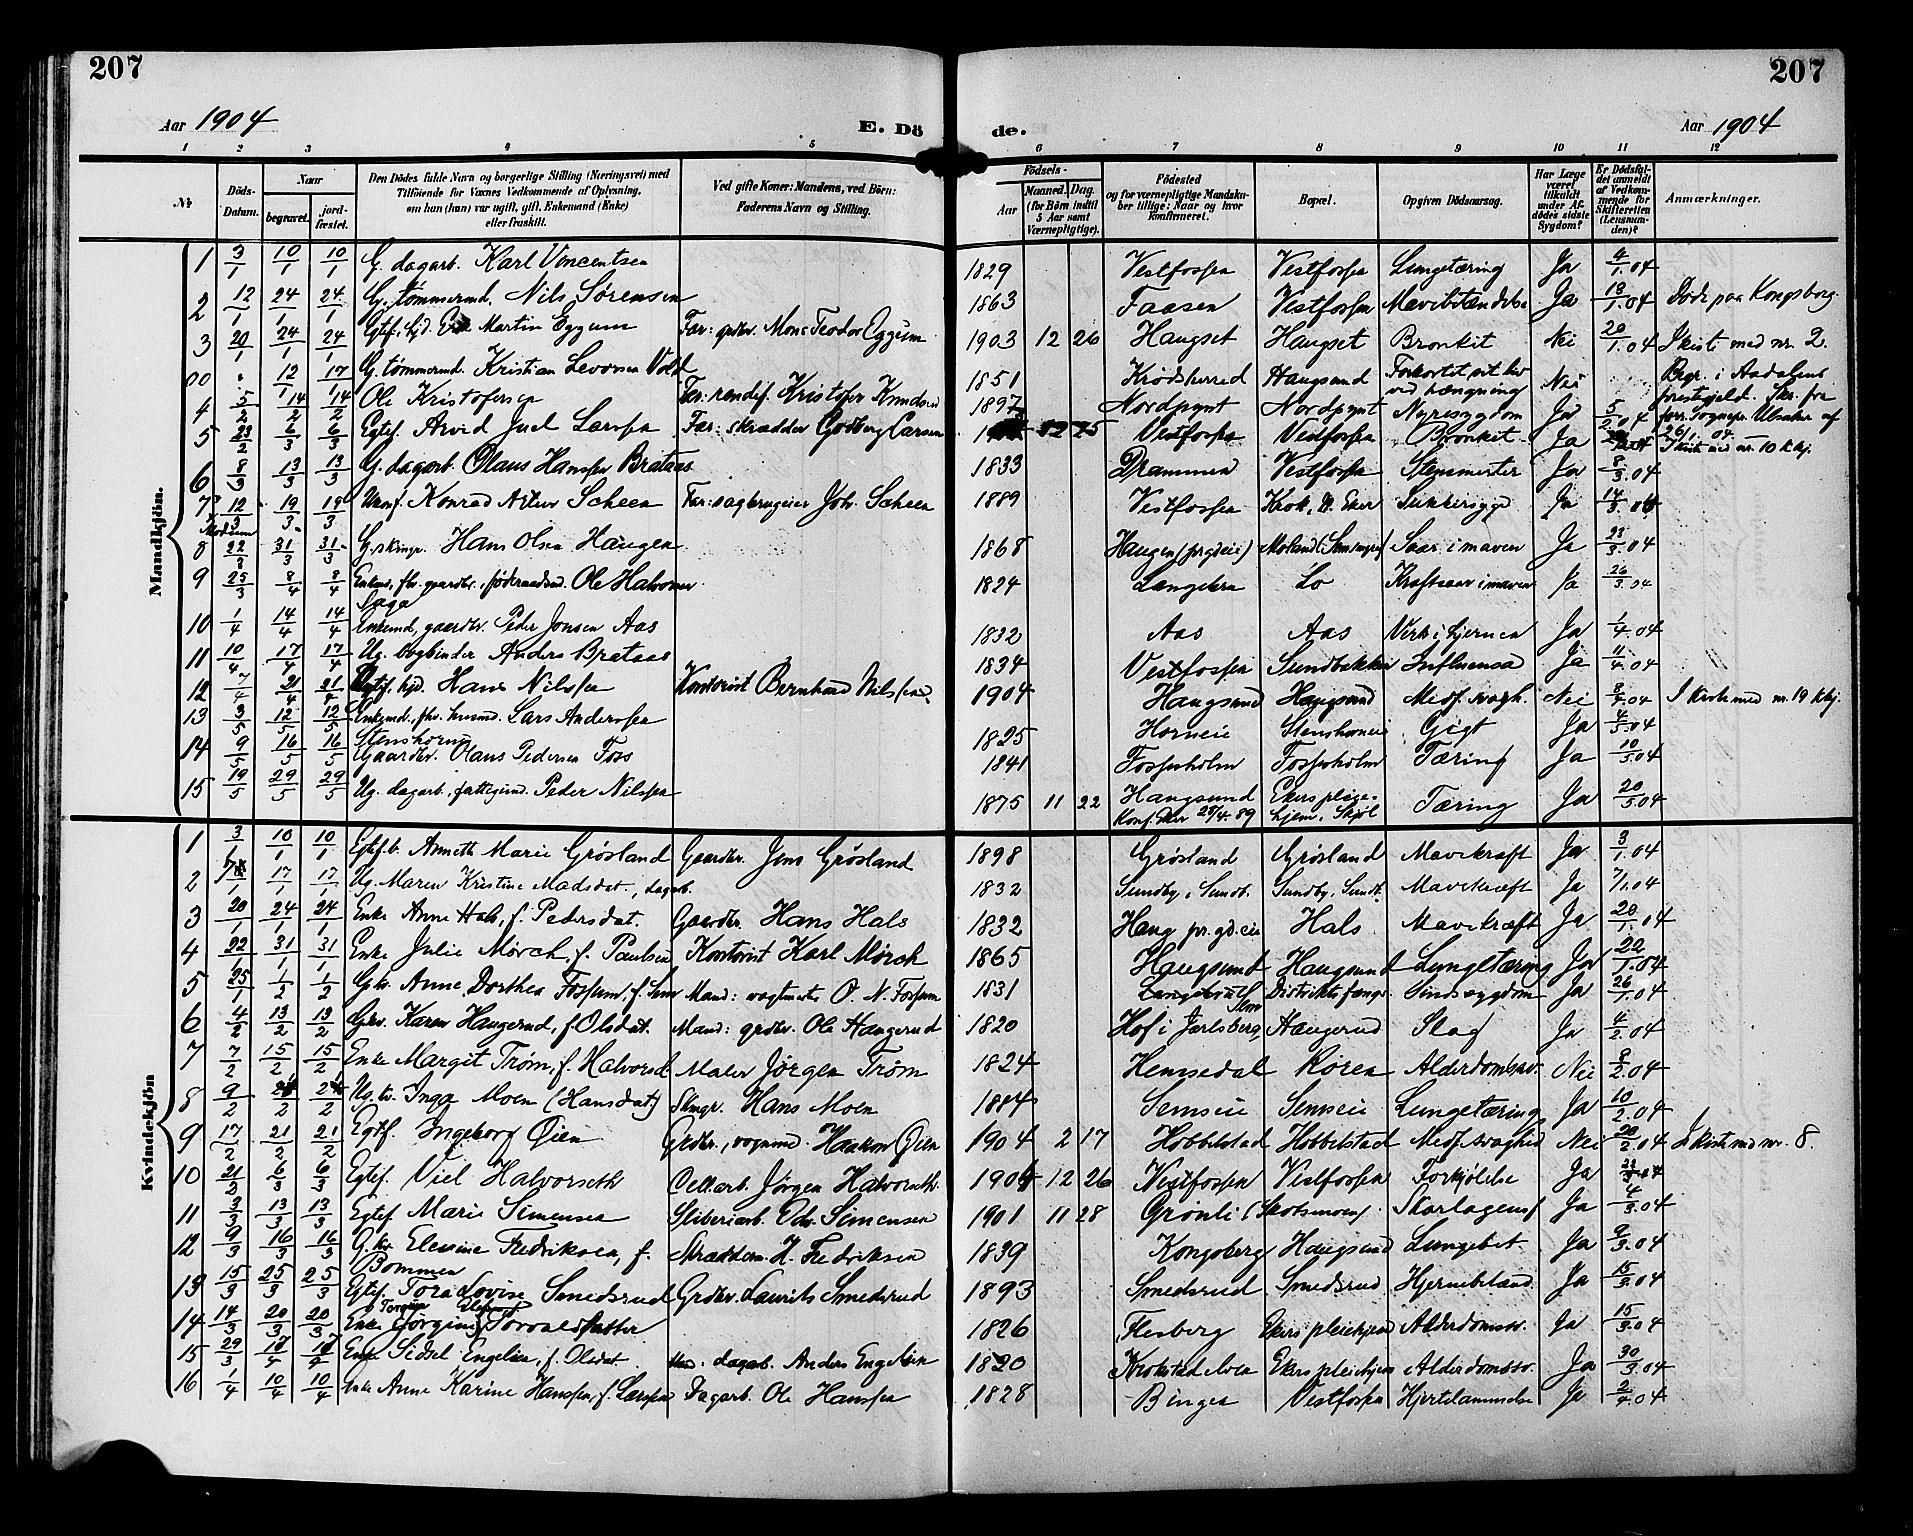 207
207
Aar 1904
E. Dö
de.
Aar 1904
1 2 3 4 5 6 7 8 9 10 11 12
№
Döds-Datum.
Naar
begravet.
jord-fæstet.
Den Dödes fulde Navn og borgerlige Stilling (Næringsvei) med
Tilföiende for Voxnes Vedkommende af Oplysning,
om han (hun) var ugift, gift, Enkemand (Enke)
eller fraskilt.
Ved gifte Koner: Mandens, ved Börn:
Faderens Navn og Stilling.
Födsels-
Aar
Maaned. Dag.
(for Börn indtil
5 Aar samt
Værnepligtige).
Födested
og for værnepligtige Mandsku-
ber tillige: Naar og hvor
konfirmeret.
Bopæl.
Opgiven Dödsaarsag.
Har Læge
været
tilkaldt
under Af-
dödes sidste
Sygdom?
Er Dödsfal-
det anmeldt
af Vedkom-
mende for
Skifteretten
(Lensman-
den)?
Anmærkninger.
Mandkjön.
1 3/1 10/1 10/1 G. dagarb. Karl Vincentsen 1829 Vestfossen Vestfossen Lungetæring Ja 4/1.04
2 12/1 24/1 24/1 G. tømmermd. Nils Sørensen 1863 Faasen Vestfossen Ja 13/1.04 Døde paa Kongsberg.
3 20/1 24/1 24/1 Martin Eggum Far: grdbr. Mons Teodor Eggum 1903 12 26 Haugset Haugset Bronkit Nei 20/1.04 I kiste med nr. 2.
00 12/1 17/1 G. tømmermd. Kristian Levorsen Vold 1851 Krødsherred Haugsund Nei Begr. i Aadalens
4 5/2 14/2 14/2 Ole Kristofersen Kristofer Knudsen 1897 Nordpynt Nordpynt Nyresygdom Ja 5/2.04
5 6/3 6/3 Egtef. Arvid Juel Larssen Far: skrædder 12 25 Vestfossen Vestfossen Bronkit Ja
6 8/3 13/3 13/3 G. dagarb. Olaus Hanssen Brataas 1833 Drammen Vestfossen Ja 8/3.04
7 12/3 19/3 19/3 Konrad Artur Scheen Far: sagbrugeier Joh. Scheen 1889 Vestfossen Krok, N. Eker Sukkersyge Ja 14/3.04
Modum
8 22/3 31/3 31/3 Hans Olsen Haugen 1868 Haugen Saar i maven Ja 23/3.04
9 25/3 8/4 8/4 Ole Halvorsen 1824 Lo Kræftsaar i maven Ja 26/3.04
10 1/4 14/4 14/4 Enkemd, gaardbr. Peder Jonsen Aas 1832 Aas Aas Ja 1/4.04
11 10/4 17/4 17/4 Ug. bogbinder Anders Brataas 1834 Vestfossen Sundbakken Influensa Ja 11/4.04
12 7/4 21/4 21/4 Hans Nilssen Kontorist Bernhard Nilssen 1904 Haugsund Haugsund Medf. svagh. Nei 8/4.04
13 3/5 12/5 12/5 Lars Anderssen 1825 Horneie Gigt Ja 4/5.04
14 9/5 16/5 16/5 Gaardbr. Olaus Pedersen Foss 1841 Fossesholm Fossesholm Tæring Ja 10/5.04
15 19/5 29/5 29/5 Ug. dagarb., fattigund. Peder Nilssen 1875 11 22 Haugsund Ekers pleie- Tæring Ja 20/5.04
hjem, Skjøl
Kvindekjön
1 3/1 10/1 10/1 Anneth Marie Grøsland Gaardbr. Jens Grøsland 1898 Grøsland Grøsland Mavekræft Ja 3/1.04
2 17/1 17/1 Ug. Maren Kristine Madsdat., dagarb. 1832 Sundby, Sundb. Sundby, Sundb. Mavekræft Ja 7/1.04
3 20/1 24/1 24/1 Enke Anne Hals, f. Pedersdat. Gaardbr. Hans Hals 1832 Hals Mavekræft Ja 20/1.04
4 22/1 31/1 31/1 Enke Julie Mørch, f. Paulsen Kontorist Karl Mørch 1865 Haugsund Haugsund Lungetæring Ja 22/1.04
5 25/1 1/2 1/2 Anne Dorthea Fossum, f. Sem Mand: vagtmester O. N. Fossum 1831 Distriktsfængs. Sindssygdom Ja 26/1.04
6 4/2 13/2 13/2 Karen Haugerud, f. Olsdat. Mand: grdbr. Ole Haugerud 1820 Hof i Jarlsberg Haugerud Slag Ja 4/2.04
7 7/2 15/2 15/2 Enke Margit Trøm, f. Halvorsd. Maler Jørgen Trøm 1824 Hemsedal Køren Alderdomssv. Nei 8/2.04
8 9/2 Ug. tv. Inga Moen (Hansdat.) Hans Moen 1884 Semseie Semseie Lungetæring Ja 10/2.04
9 17/2 21/2 21/2 Egtf. Ingeborg Øien Haakon Øien 1904 2 17 Hobbelstad Hobbelstad Medf. svaghed Nei 20/2.04 I kiste med nr. 8.
10 21/2 6/3 6/3 Egtef. Viel Halvorseth Cell.arb. Jørgen Halvorseth. 12 26 Vestfossen Vestfossen Forkjølelse Ja
11 3/3 13/3 13/3 Egtef. Marie Simensen Sliberiarb. Edv. Simensen 1901 11 28 Grønli (Skotsmoen) Skarlagensf. Ja 4/3.04
12 9/3 16/3 16/3 Elevine Fredriksen, f. Skræddem. H. Fredriksen 1839 Kongsberg Haugsund Lungebet. Ja 9/3.04
Bommen
13 15/3 25/3 25/3 Egtef. Tora Lovise Smedsrud Grdbr. Laurits Smedsrud 1893 Smedsrud Smedsrud Ja 15/3.04
14 14/3 20/3 20/3 Enke 1826 Flesberg Ekers pleiehjem Alderdomssv. Ja 15/3.04
15 29/3 Enke Sidsel Engelsen, f. Olsdat. dagarb. Anders Engelsen 1820 Krokstadelven Ekers pleiehjem Alderdomssv. Ja 30/3.04
16 1/4 10/4 10/4 Enke Anne Karine Hanssen, f. Larssen Dagarb. Ole Hanssen 1828 Bingen Vestfossen Hjertelammelse Ja 2/4.04